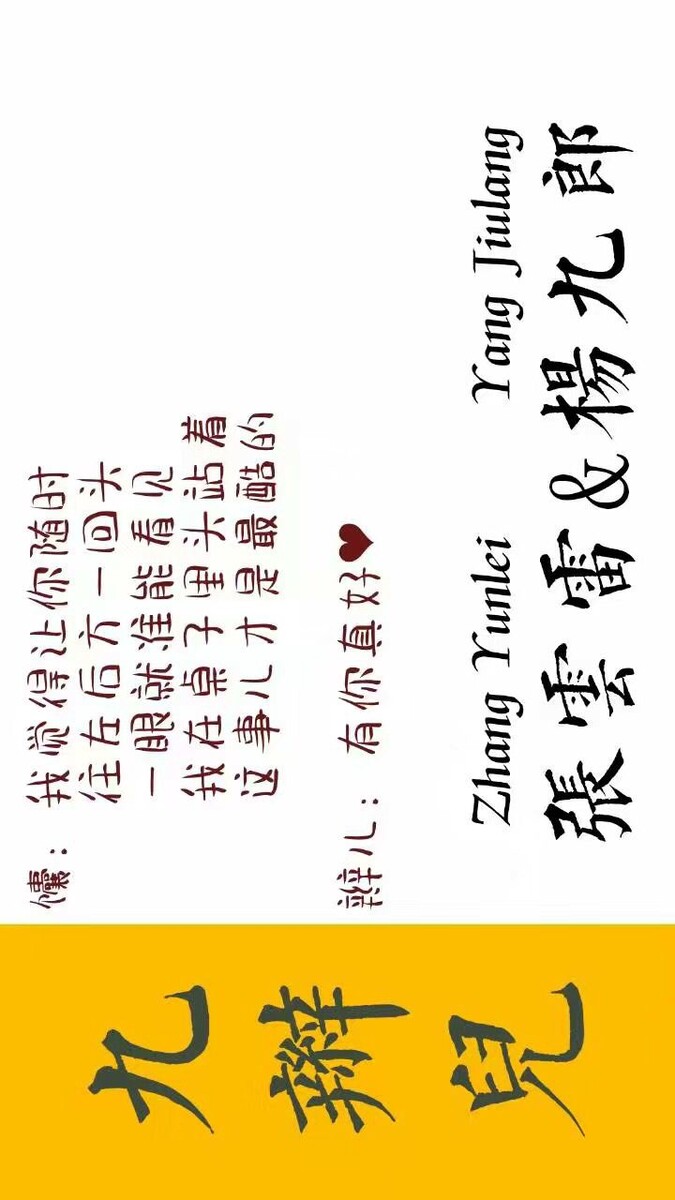 九辮兒
囔：我觉得让你随时
往左后方一回头
一眼就准能看见
我在桌子里头站着
这事儿才是最酷的
辫儿：有你真好
Zhang Yunlei Yang Jiulang
張雲雷&楊九郎